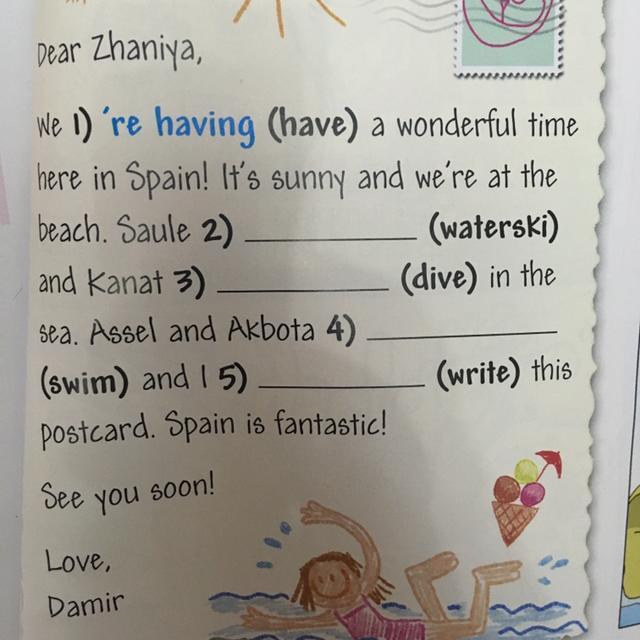 Dear Zhaniya,
We 1) 're having (have) a wonderful time
here in Spain! It's sunny and we're at the
beach. Saule 2) ____________ (waterski)
and Kanat 3) ____________ (dive) in the
sea. Assel and Akbota 4) ____________
(swim) and I 5) ____________ (write) this
postcard. Spain is fantastic!
See you soon!
Love,
Damir